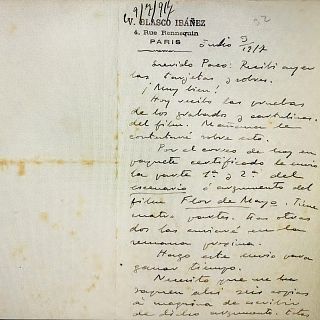 9/7/917
V. BLASCO IBÁÑEZ
4, Rue Rennequin
PARIS
Julio 5
Querido Paco: Recibí ayer
las tarjetas y sobres.
¡Muy bien!
Hoy recibo las pruebas
de los grabados y cartulinas
del film. Mañana te
contestaré sobre esto.
Por el correo de hoy en
paquete certificado te envío
la parte 1ª y 2ª del
escenario ó argumento del
film Flor de Mayo. Tiene
cuatro partes. Las otras
dos las enviaré en la
semana próxima.
Hago este envío para
ganar tiempo.
Necesito que me
saquen seis copias
á máquina de escribir
de dicho argumento.